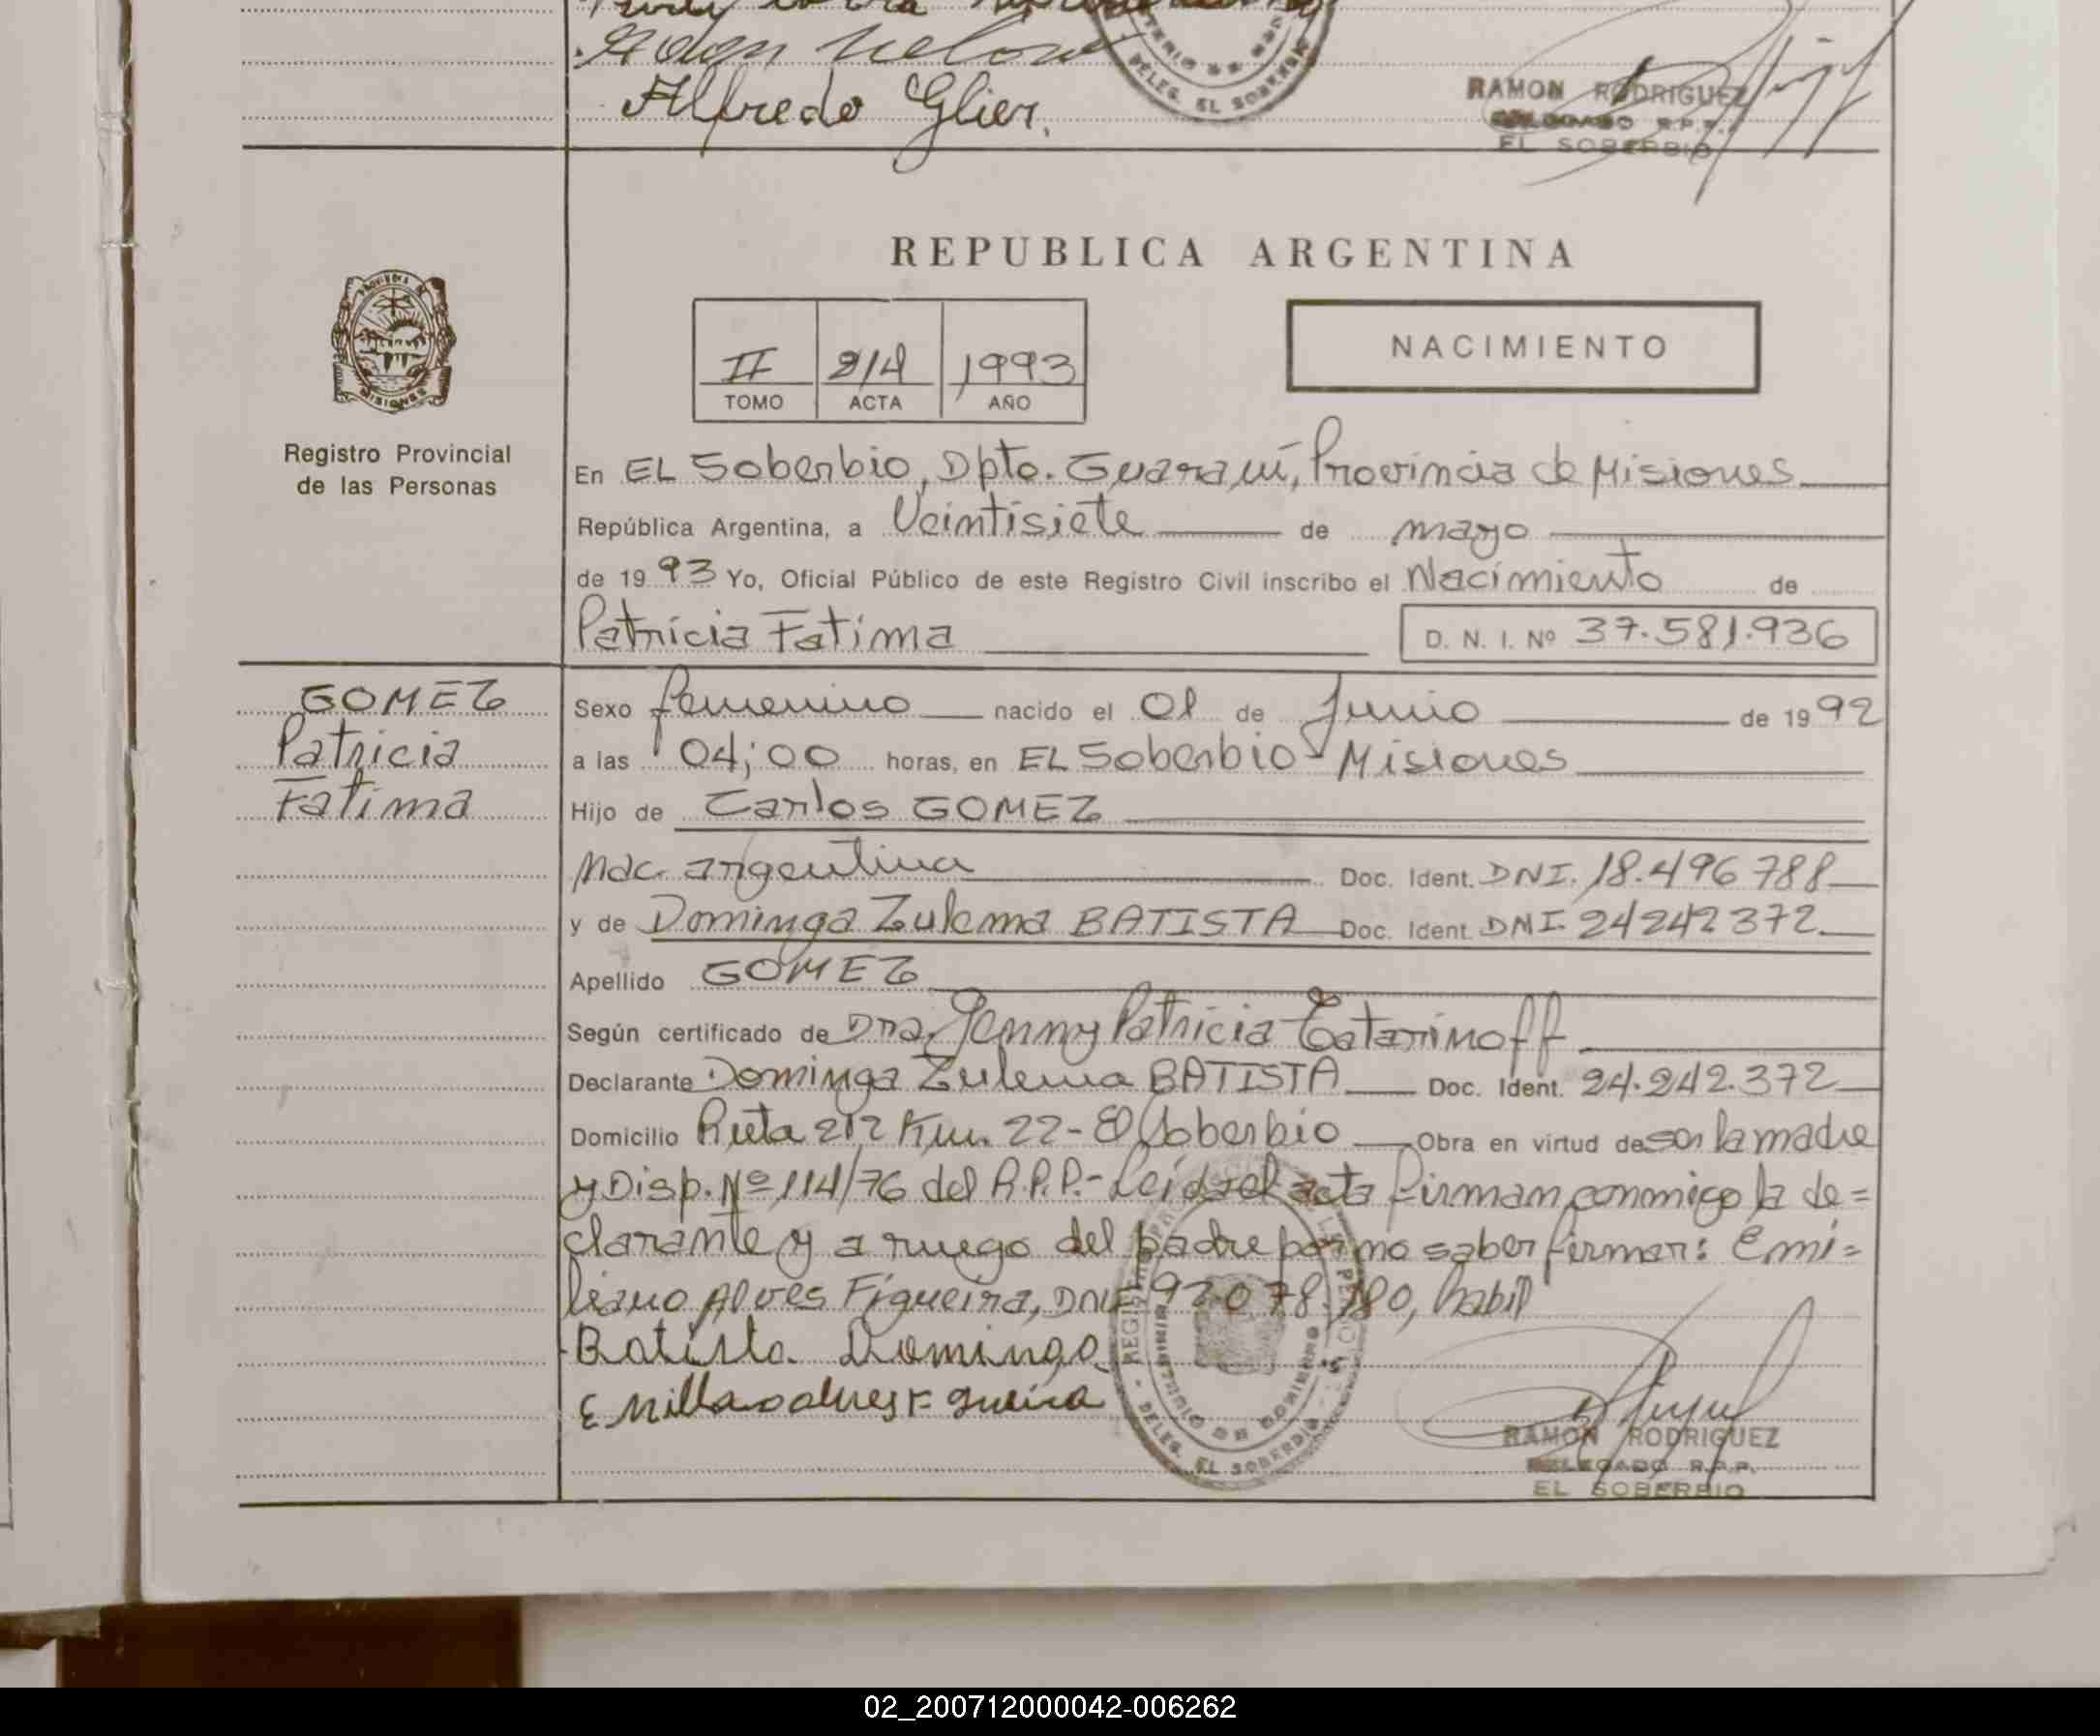 Alfredo Glier.
RAMON RODRIGUEZ
DELEGADO R.P.P.
EL SOBERBIO
DELEG. EL SOBERBIO
REPUBLICA ARGENTINA
PROVINCIA DE
MISIONES
II
1993
NACIMIENTO
TOMO ACTA AÑO
Registro Provincial
de las Personas
En EL Soberbio, Dpto. Guaraní, Provincia de Misiones
República Argentina, a Veintisiete de mayo
de 19 93 Yo, Oficial Público de este Registro Civil inscribo el Nacimiento de
Patricia Fatima D. N. I. Nº 37.581.936
GOMEZ
Patricia
Fatima
Sexo femenino nacido el 01 de Junio de 19 92
a las 04;00 horas, en EL Soberbio - Misiones
Hijo de Carlos GOMEZ
Nac. argentina Doc. Ident. DNI. 18.496 788
y de Dominga Zulema BATISTA Doc. Ident. DNI. 24242372
Apellido GOMEZ
Según certificado de Dra. Jenny Patricia Tatarinoff
Declarante Dominga Zulema BATISTA Doc. Ident. 24.242.372
Domicilio Ruta 212 Km. 22 - El Soberbio Obra en virtud de ser la madre
y Disp. Nº 114/76 del R.P.P.- Leída el acta firman conmigo la de=
clarante y a ruego del padre por no saber firmar: Emi=
liano Alves Figueira, DNI 92078.780, habil
Batista Dominga
DELEG. EL SOBERBIO
RAMON RODRIGUEZ
DELEGADO R.P.P.
EL SOBERBIO
02_200712000042-006262